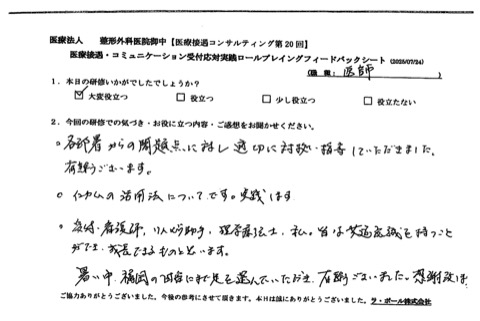 医療法人　整形外科医院御中【医療接遇コンサルティング第20回】
医療接遇・コミュニケーション受付応対実践ロールプレイングフィードバックシート (2025/07/24)
(職種: 医師)
1. 本日の研修いかがでしたでしょうか?
☑ 大変役立つ　□ 役立つ　□ 少し役立つ　□ 役立たない
2. 今回の研修での気づき・お役に立つ内容・ご感想をお聞かせください。
○ 各部署からの問題点に対し適切に対処・指導していただきました。
有難うございます。
○ インカムの活用法についてです。実践します
○ 受付・看護師、リハビリ助手、理学療法士、私。皆は共通意識を持つこと
ができ、成長できるものと思います。
暑い中、福岡の田舎にまで足を運んでいただき、有難うございました。感謝
ご協力ありがとうございました。今後の参考にさせて頂きます。本日は誠にありがとうございました。ラ・ポール株式会社